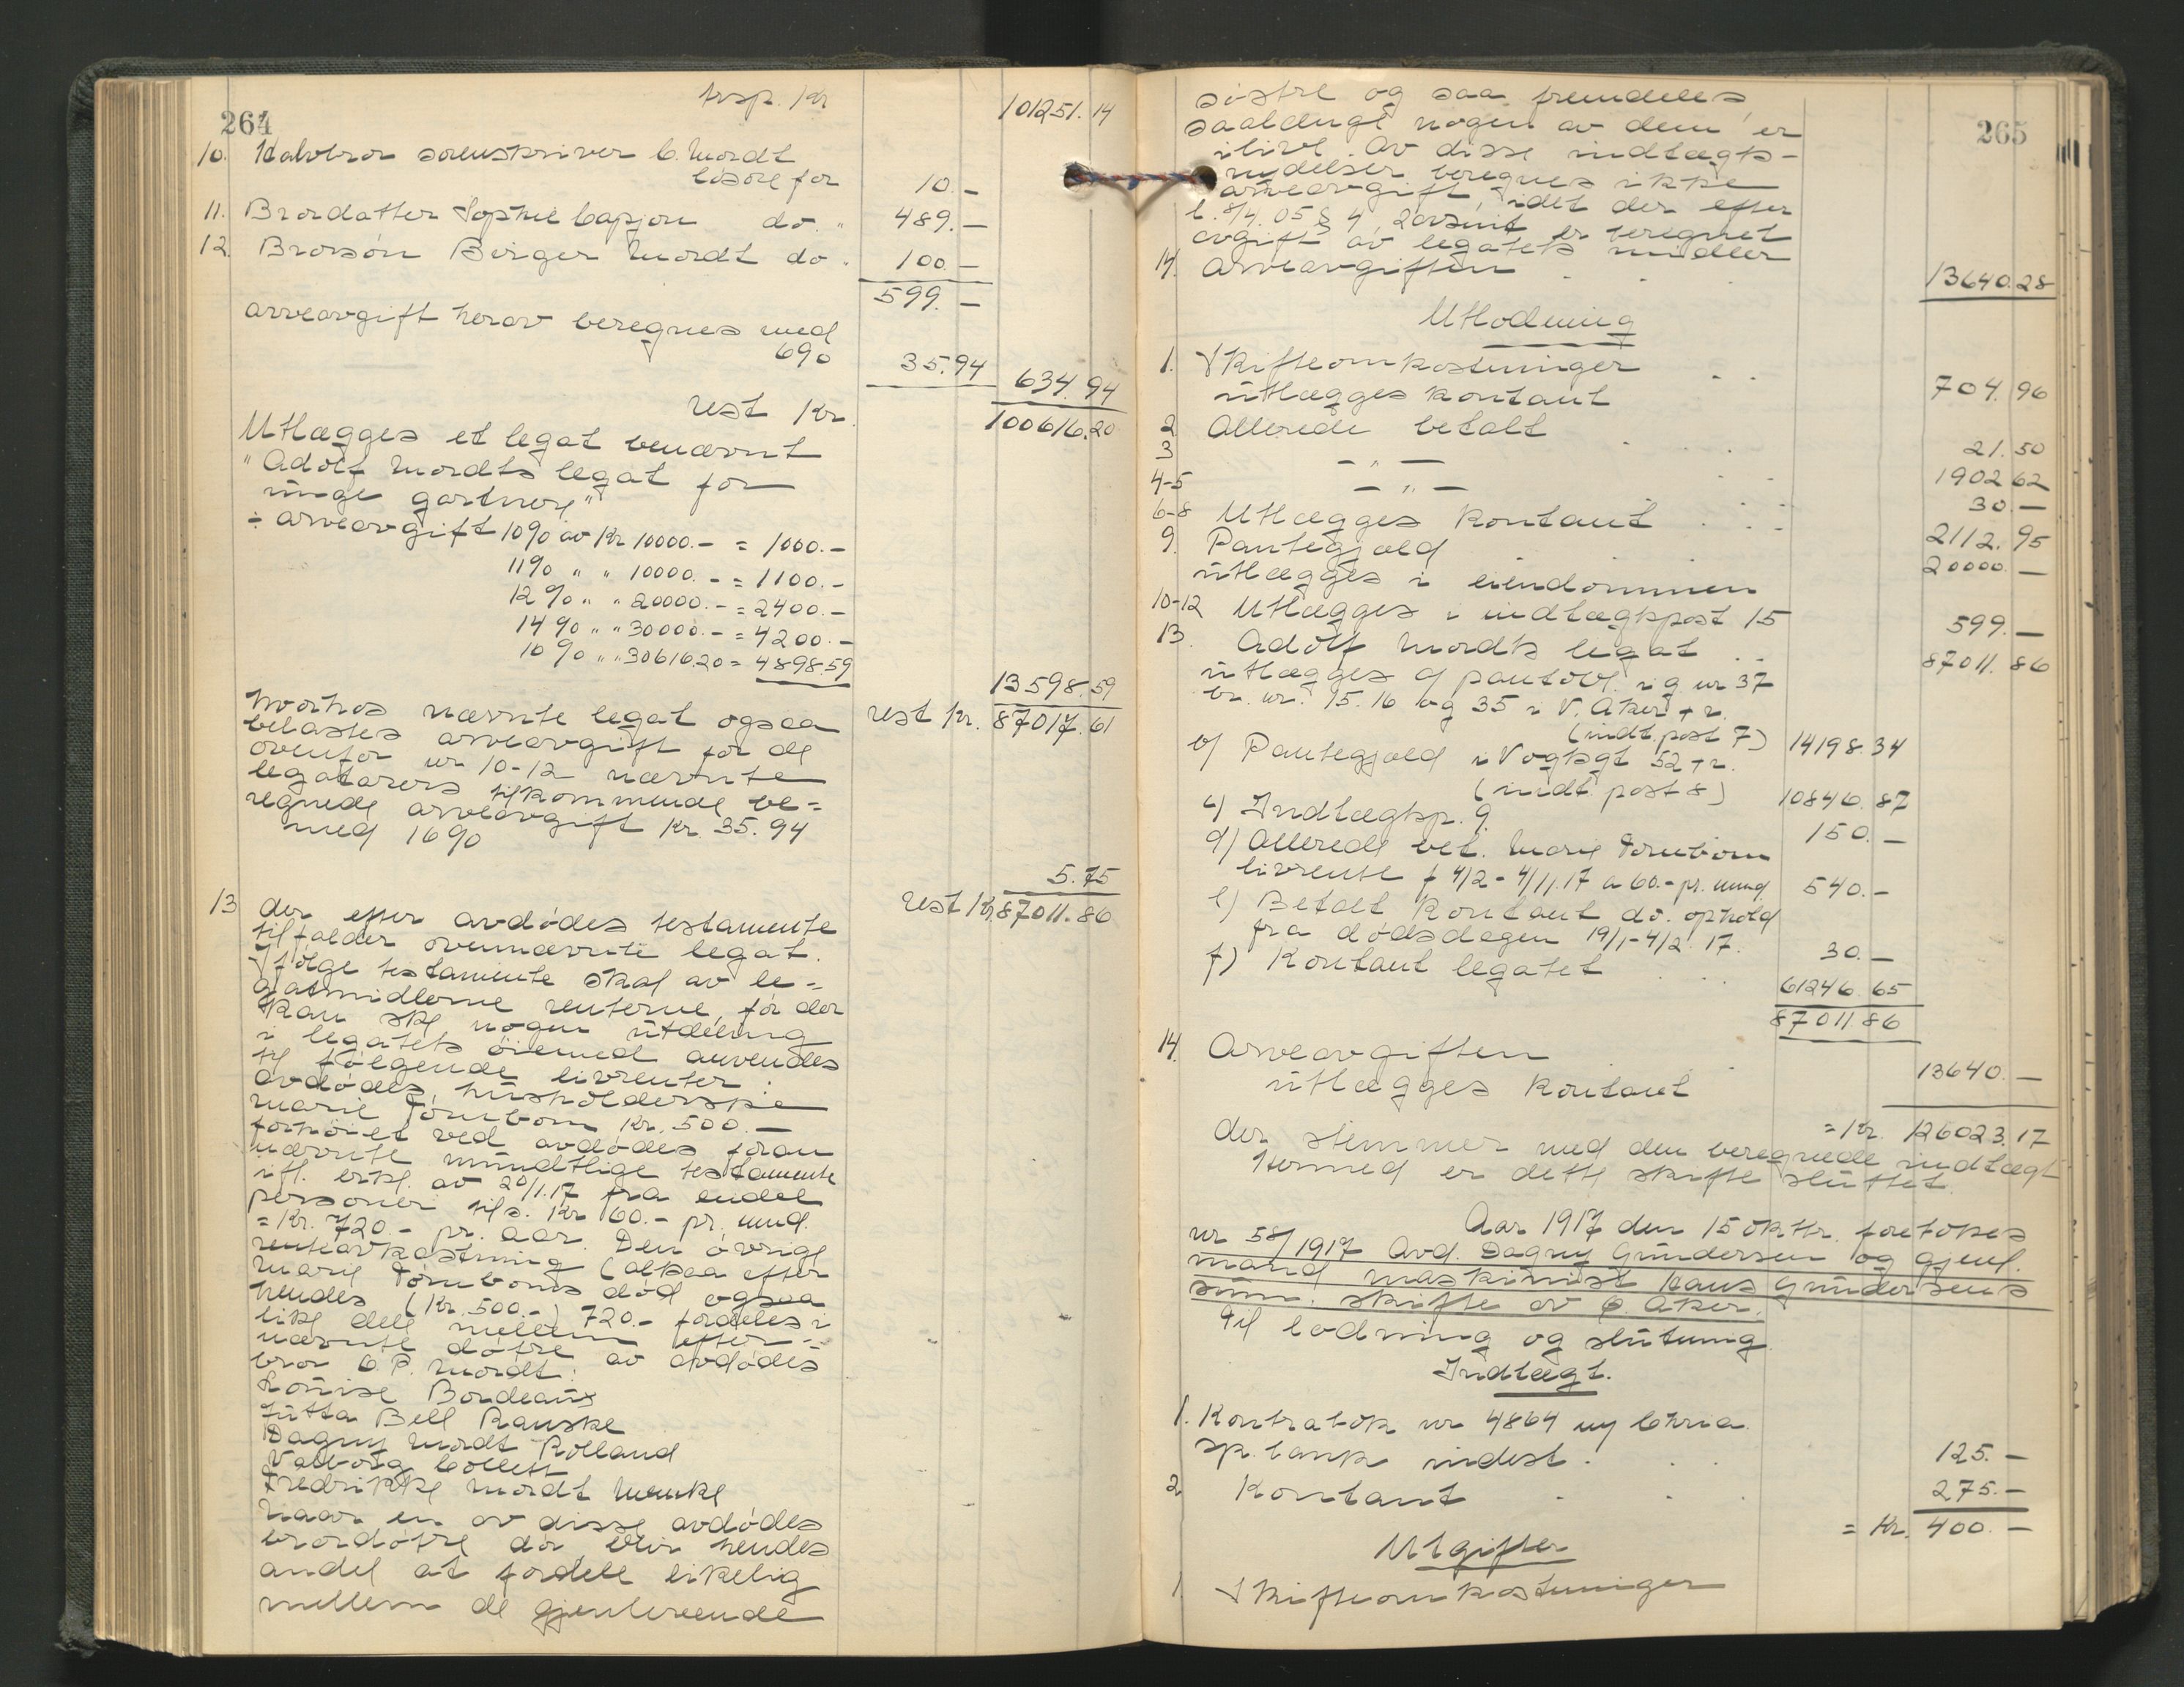 264
trsp. Kr 101251.14
10. Halvbror sorenskriver C. Mordt
løsøre for 10.-
11. Brordatter Sophie Capjon do. " 489.-
12. Brorsøn Birger Mordt do. 100.-
599.-
arveavgift herav beregnes med
6% 35.94 634.94
rest Kr. 100616.20
Utlægges et legat benævnt
"Adolf Mordts legat for
unge gartnere"
÷ arveavgift 10% av Kr 10000.- = 1000.-
11% " " 10000.- = 1100.-
12% " " 20000.- = 2400.-
14% " " 30000.- = 4200.-
16% " " 30616.20 = 4898.59
13598.59
rest Kr. 87017.61
hvorhos nævnte legat ogsaa
belastes arveavgift for de
ovenfor nr 10-12 nævnte
legatarers tilkommende be=
regnede arveavgift Kr. 35.94
med 16%
5.75
rest Kr. 87011.86
13 der efter avdødes testamente
tilfalder ovennævnte legat.
Ifølge testamente skal av le=
gatmidlerne renterne, før der
kan ske nogen utdeling
i legatets øiemed anvendes
til følgende livrenter:
avdødes husholderske
Marie Törnbom Kr. 500.-
forhøiet ved avdødes foran
nævnte mundtlige testamente
ifl. erkl. av 20/1.17 fra endel
personer til s. Kr 60.- pr. mnd.
= Kr. 720.- pr. aar. Den øvrige
renteavkastning (altsaa efter
Marie Törnboms død ogsaa
hendes (Kr. 500.-) 720.- fordeles i
like dele mellem efter=
nævnte døtre av avdødes
bror C.P. Mordt:
Louise Bordeaux
Jutta Bell Ranske
Dagny Mordt Rolland
Valborg Collett
Fredrikke Mordt Mencke
Naar en av disse avdødes
brordøtre dør blir hendes
andel at fordele likelig
mellem de gjenlevende
265
søstre og saa fremdeles
saalænge nogen av dem er
ilive. Av disse indtægts-
nydelser beregnes ikke
arveavgift, idet der efter
l. 8/4.05 § 4, 2avsnit er beregnet
avgift av legatets midler
14. Arveavgiften 13640.28
Utlodning
1. Skifteomkostninger 704.96
utlægges kontant
2 Allerede betalt 21.50
3 - " - 1902.62
4-5 - " - 30.-
6-8 Utlægges kontant 2112.95
9. Pantegjæld 20000.-
utlægges i eiendommen
10-12 Utlægges i indtægtspost 15 599.-
13. Adolf Mordts legat 87011.86
utlægges a) pantobl. i g. nr 37
br. nr. 15.16 og 35 i V. Aker + r.
(indt. post 7) 14198.34
b) Pantegjæld i Vogtsgt 52 + r.
(indt. post 8) 10846.87
c) Indtægtsp. 9. 150.-
d) Allerede bet. Marie Törnbom
livrente f 4/2 - 4/11.17 a 60.- pr. mnd. 540.-
e) Betalt kontant do. ophold
fra dødsdagen 19/1-4/2.17. 30.-
f) Kontant legatet 61246.65
87011.86
14. Arveavgiften 13640.-
utlægges kontant
= Kr. 126023.17
der stemmer med den beregnede indtægt
Hermed er dette skifte sluttet.
Aar 1917 den 15 oktbr. foretokes
nr 58/1917 Avd. Dagny Gundersen og gjenl.
mand maskinist Hans Gundersens
sam. skifte av Ø. Aker.
Til lodning og slutning
Indtægt.
1. Kontrabok nr 4864 ny Chria
sp. bank indest. 125.-
2 Kontant 275.-
= Kr. 400.-
Utgifter
1 Skifteomkostninger